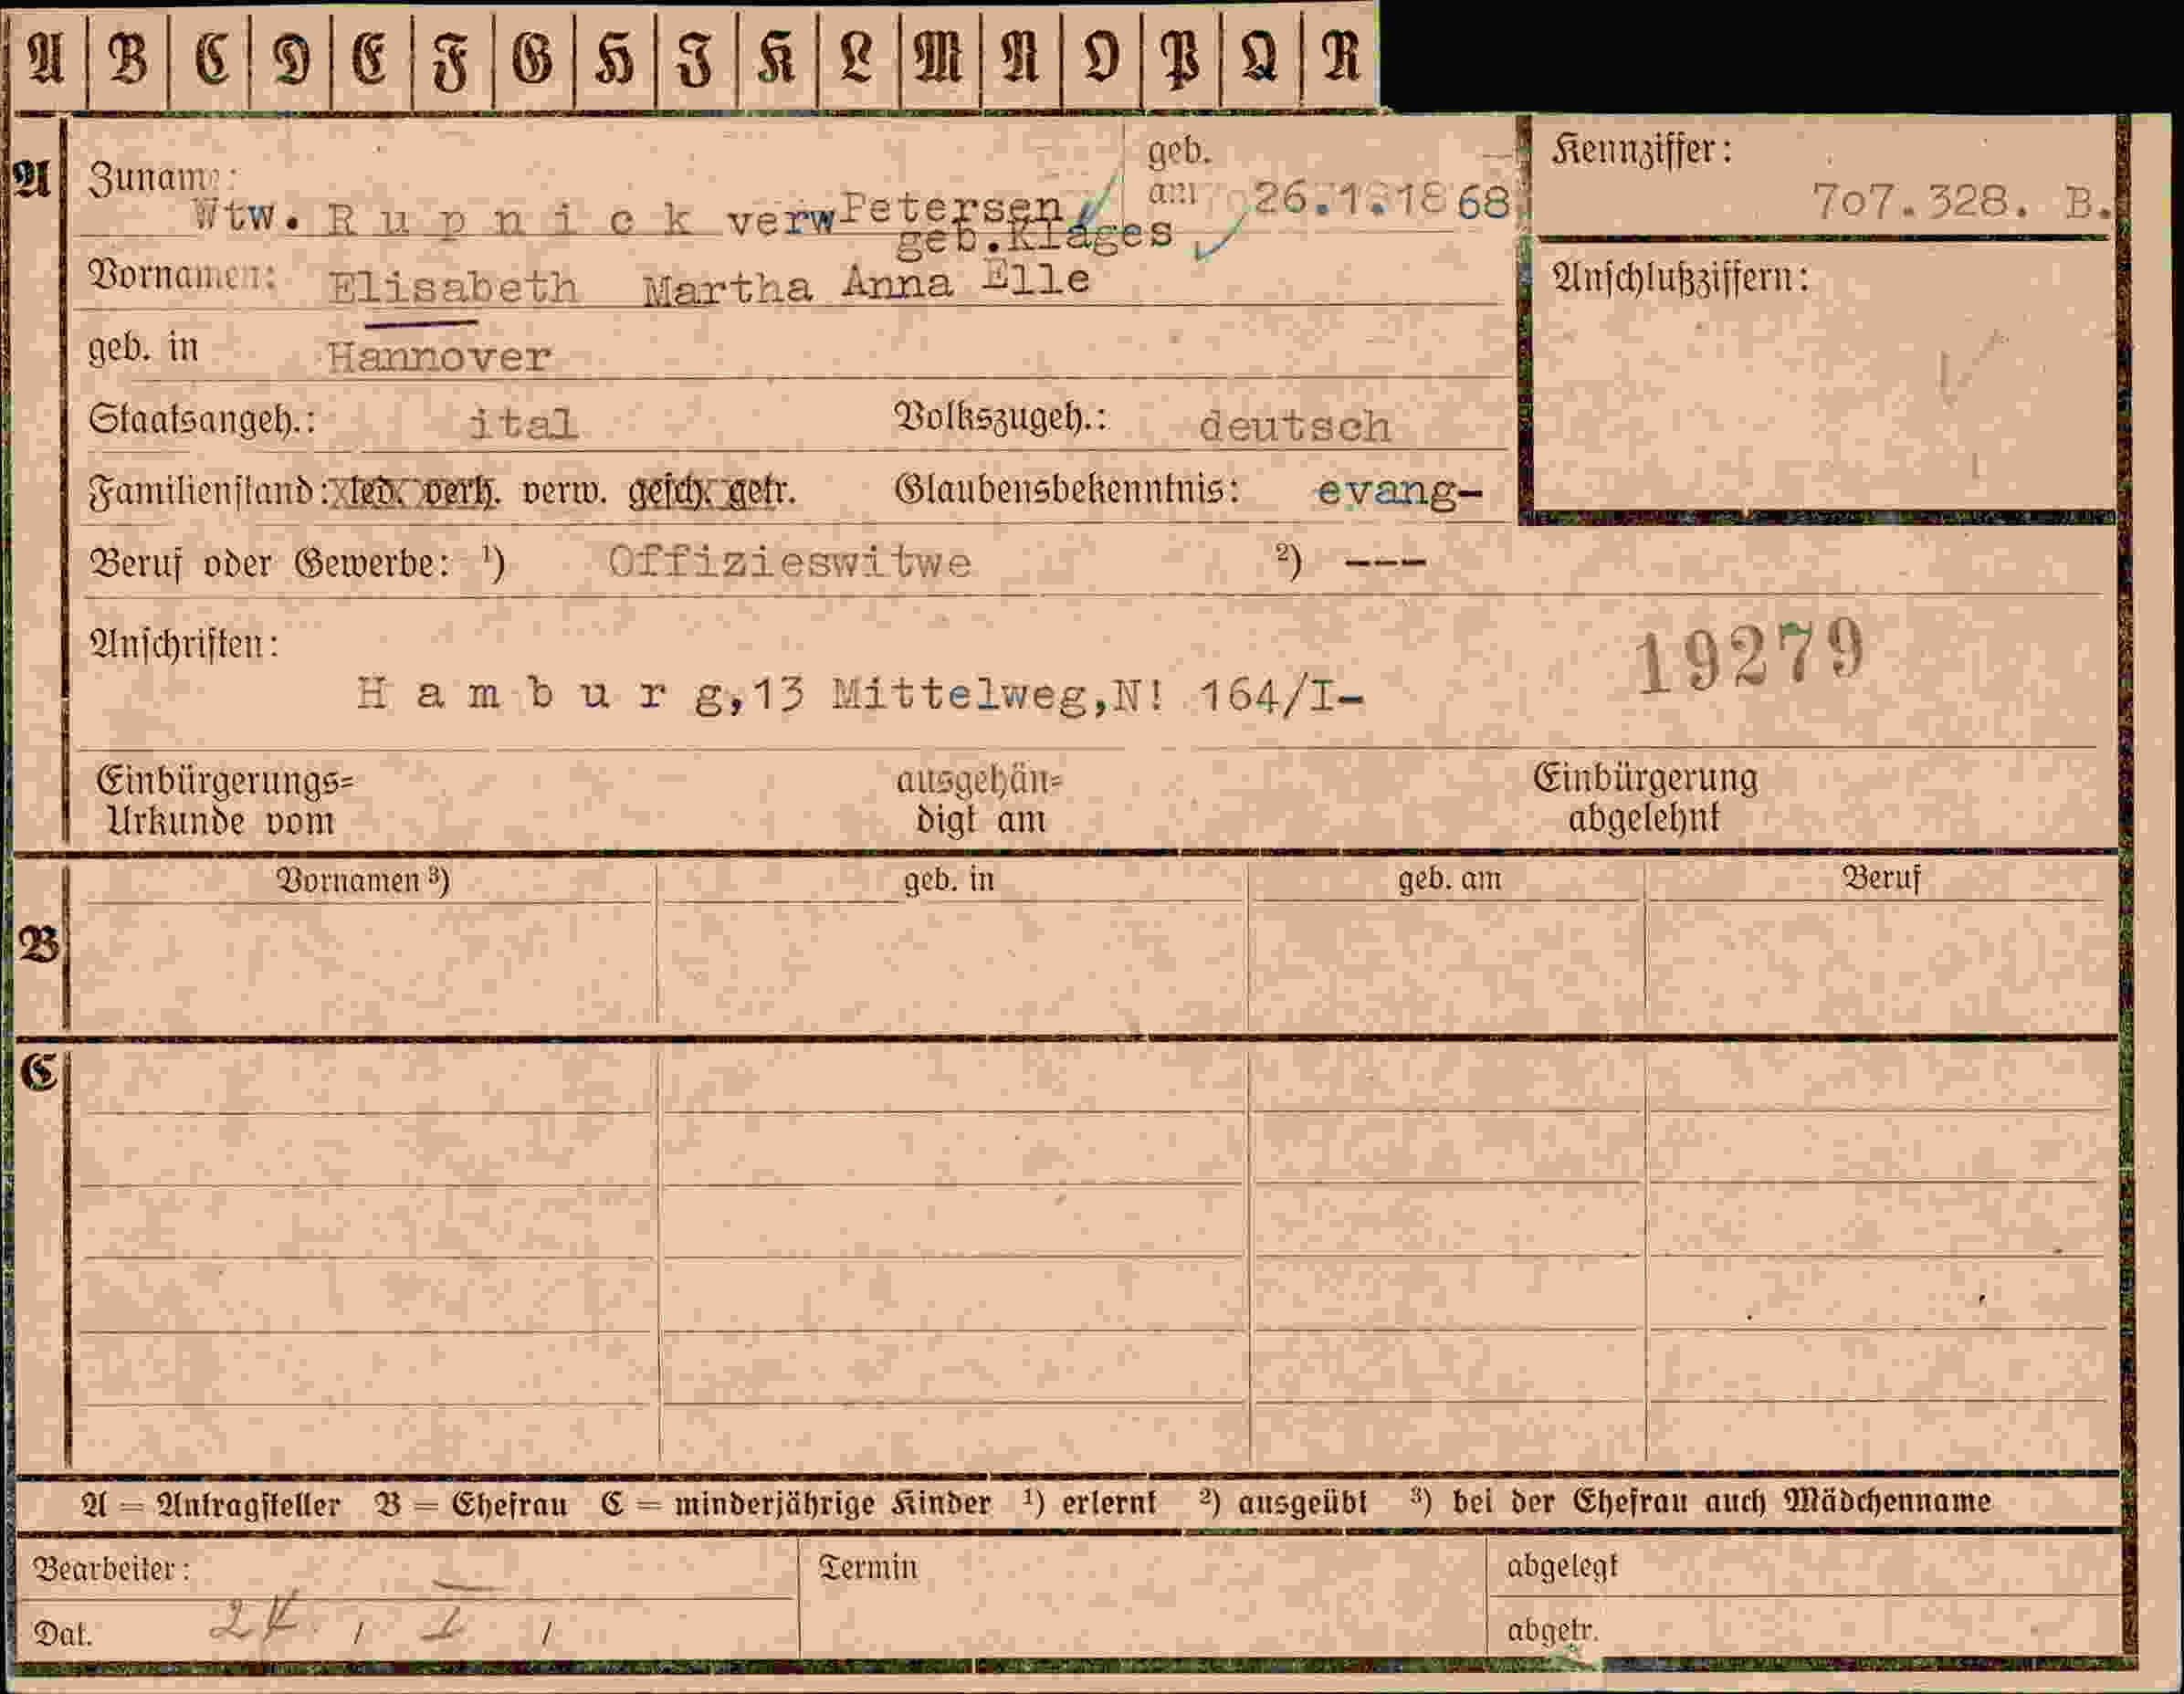 A B C D E F G H I K L M N O P Q R
A
Zuname: Wtw. R u p n i c k verw Petersen geb.Klages
geb. am 26.1.1868
Kennziffer: 707.328. B.
Vornamen: Elisabeth Martha Anna Elle
Anschlußziffern:
geb. in Hannover
Staatsangeh.: ital Volkszugeh.: deutsch
Familienstand: led. verh. verw. gesch. getr. Glaubensbekenntnis: evang-
Beruf oder Gewerbe: ¹) Offizieswitwe ²) ---
Anschriften:
19279
H a m b u r g,13 Mittelweg,N! 164/I-
Einbürgerungs= ausgehän= Einbürgerung
Urkunde vom digt am abgelehnt
Vornamen ³) geb. in geb. am Beruf
B
C
A = Antragsteller B = Ehefrau C = minderjährige Kinder ¹) erlernt ²) ausgeübt ³) bei der Ehefrau auch Mädchenname
Bearbeiter: Termin abgelegt
Dat. abgetr.